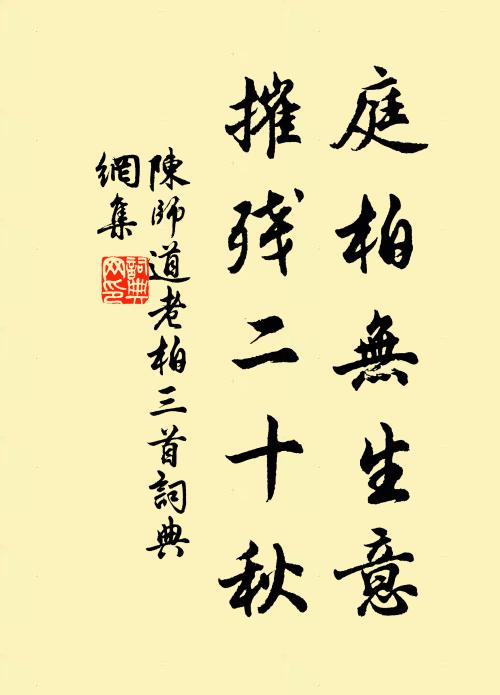 庭柏無生意
摧残二十秋
陳師道老柏三首詞典
網集
詞典
网印